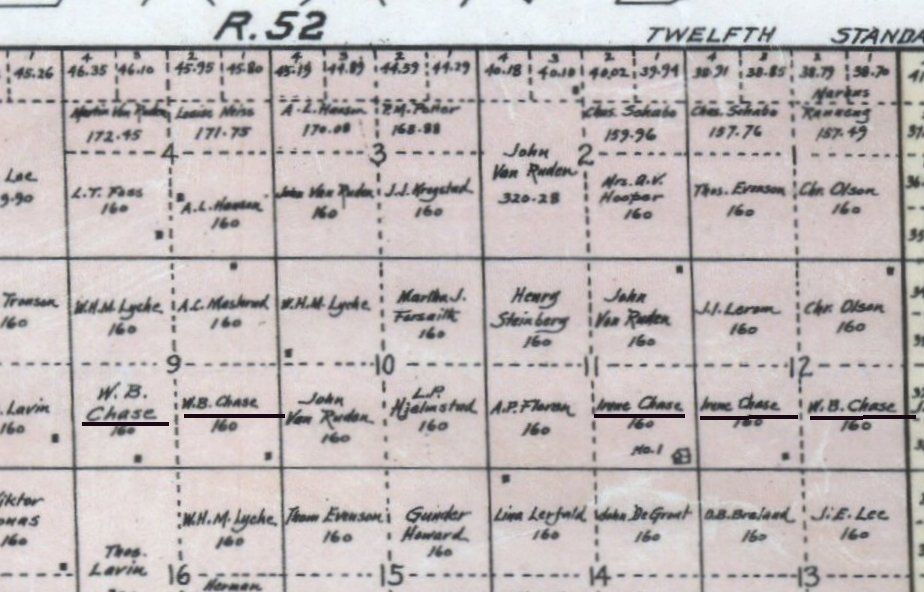 R.52
TWELFTH STANDA
45.26 46.35 46.10 45.95 45.80 45.19 44.89 44.59 44.29 40.18 40.10 40.02 39.94 38.91 38.85 38.79 38.70
Martin Van Ruden
172.45
Louise Neiss
171.75
A.L. Hanson
170.08
P.M. Porter
168.88
John
Van Ruden
320.28
Chas. Schabo
159.96
Chas. Schabo
157.76
Markus
Ranneng
157.49
4 3 2 1
Lee
9.90
L.T. Foss
160
A.L. Hanson
160
John Van Ruden
160
J.J. Krogstad
160
Mrs. A.V.
Hooper
160
Thos. Evenson
160
Chr. Olson
160
Tronson
160
W.H.M. Lyche
160
A.C.
160
W.H.M. Lyche
Martha J.
Forsaith
160
Henry
Steinberg
160
John
Van Ruden
160
J.I. Lerom
160
Chr. Olson
160
9 10 11 12
Lavin
160
W.B.
Chase
160
W.B. Chase
160
John
Van Ruden
160
L.P.
Hjelmstad
160
A.P. Floren
160
Irene Chase
160
No.1
Irene Chase
160
W.B. Chase
160
160
Thos.
Lavin
W.H.M. Lyche
160
Thom Evenson
160
Gunder
Howard
160
Lina Lerfald
160
John DeGroat
160
O.B. Breland
160
J.E. Lee
160
16 15 14 13
Herman